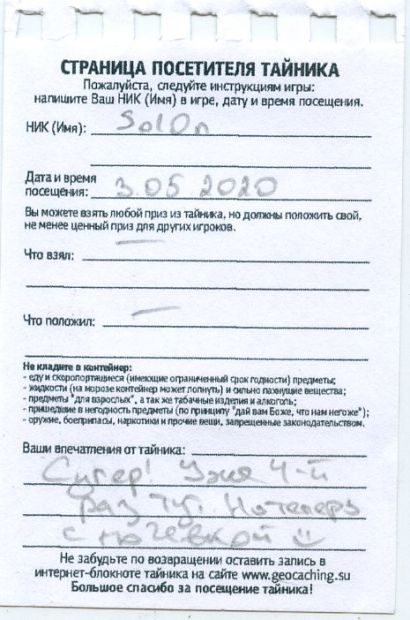 СТРАНИЦА ПОСЕТИТЕЛЯ ТАЙНИКА
Пожалуйста, следуйте инструкциям игры:
напишите Ваш НИК (Имя) в игре, дату и время посещения.
НИК (Имя): SolOn
Дата и время
посещения: 3.05 2020
Вы можете взять любой приз из тайника, но должны положить свой,
не менее ценный приз для других игроков.
Что взял: —
Что положил: —
Не кладите в контейнер:
- еду и скоропортящиеся (имеющие ограниченный срок годности) предметы;
- жидкости (на морозе контейнер может лопнуть) и сильно пахнущие вещества;
- предметы "для взрослых", а так же табачные изделия и алкоголь;
- пришедшие в негодность предметы (по принципу "дай вам Боже, что нам негоже");
- оружие, боеприпасы, наркотики и прочие вещи, запрещенные законодательством.
Ваши впечатления от тайника:
Супер! Уже 4-й
раз тут. Но теперь
с ночевкой ☺
Не забудьте по возвращении оставить запись в
интернет-блокноте тайника на сайте www.geocaching.su
Большое спасибо за посещение тайника!